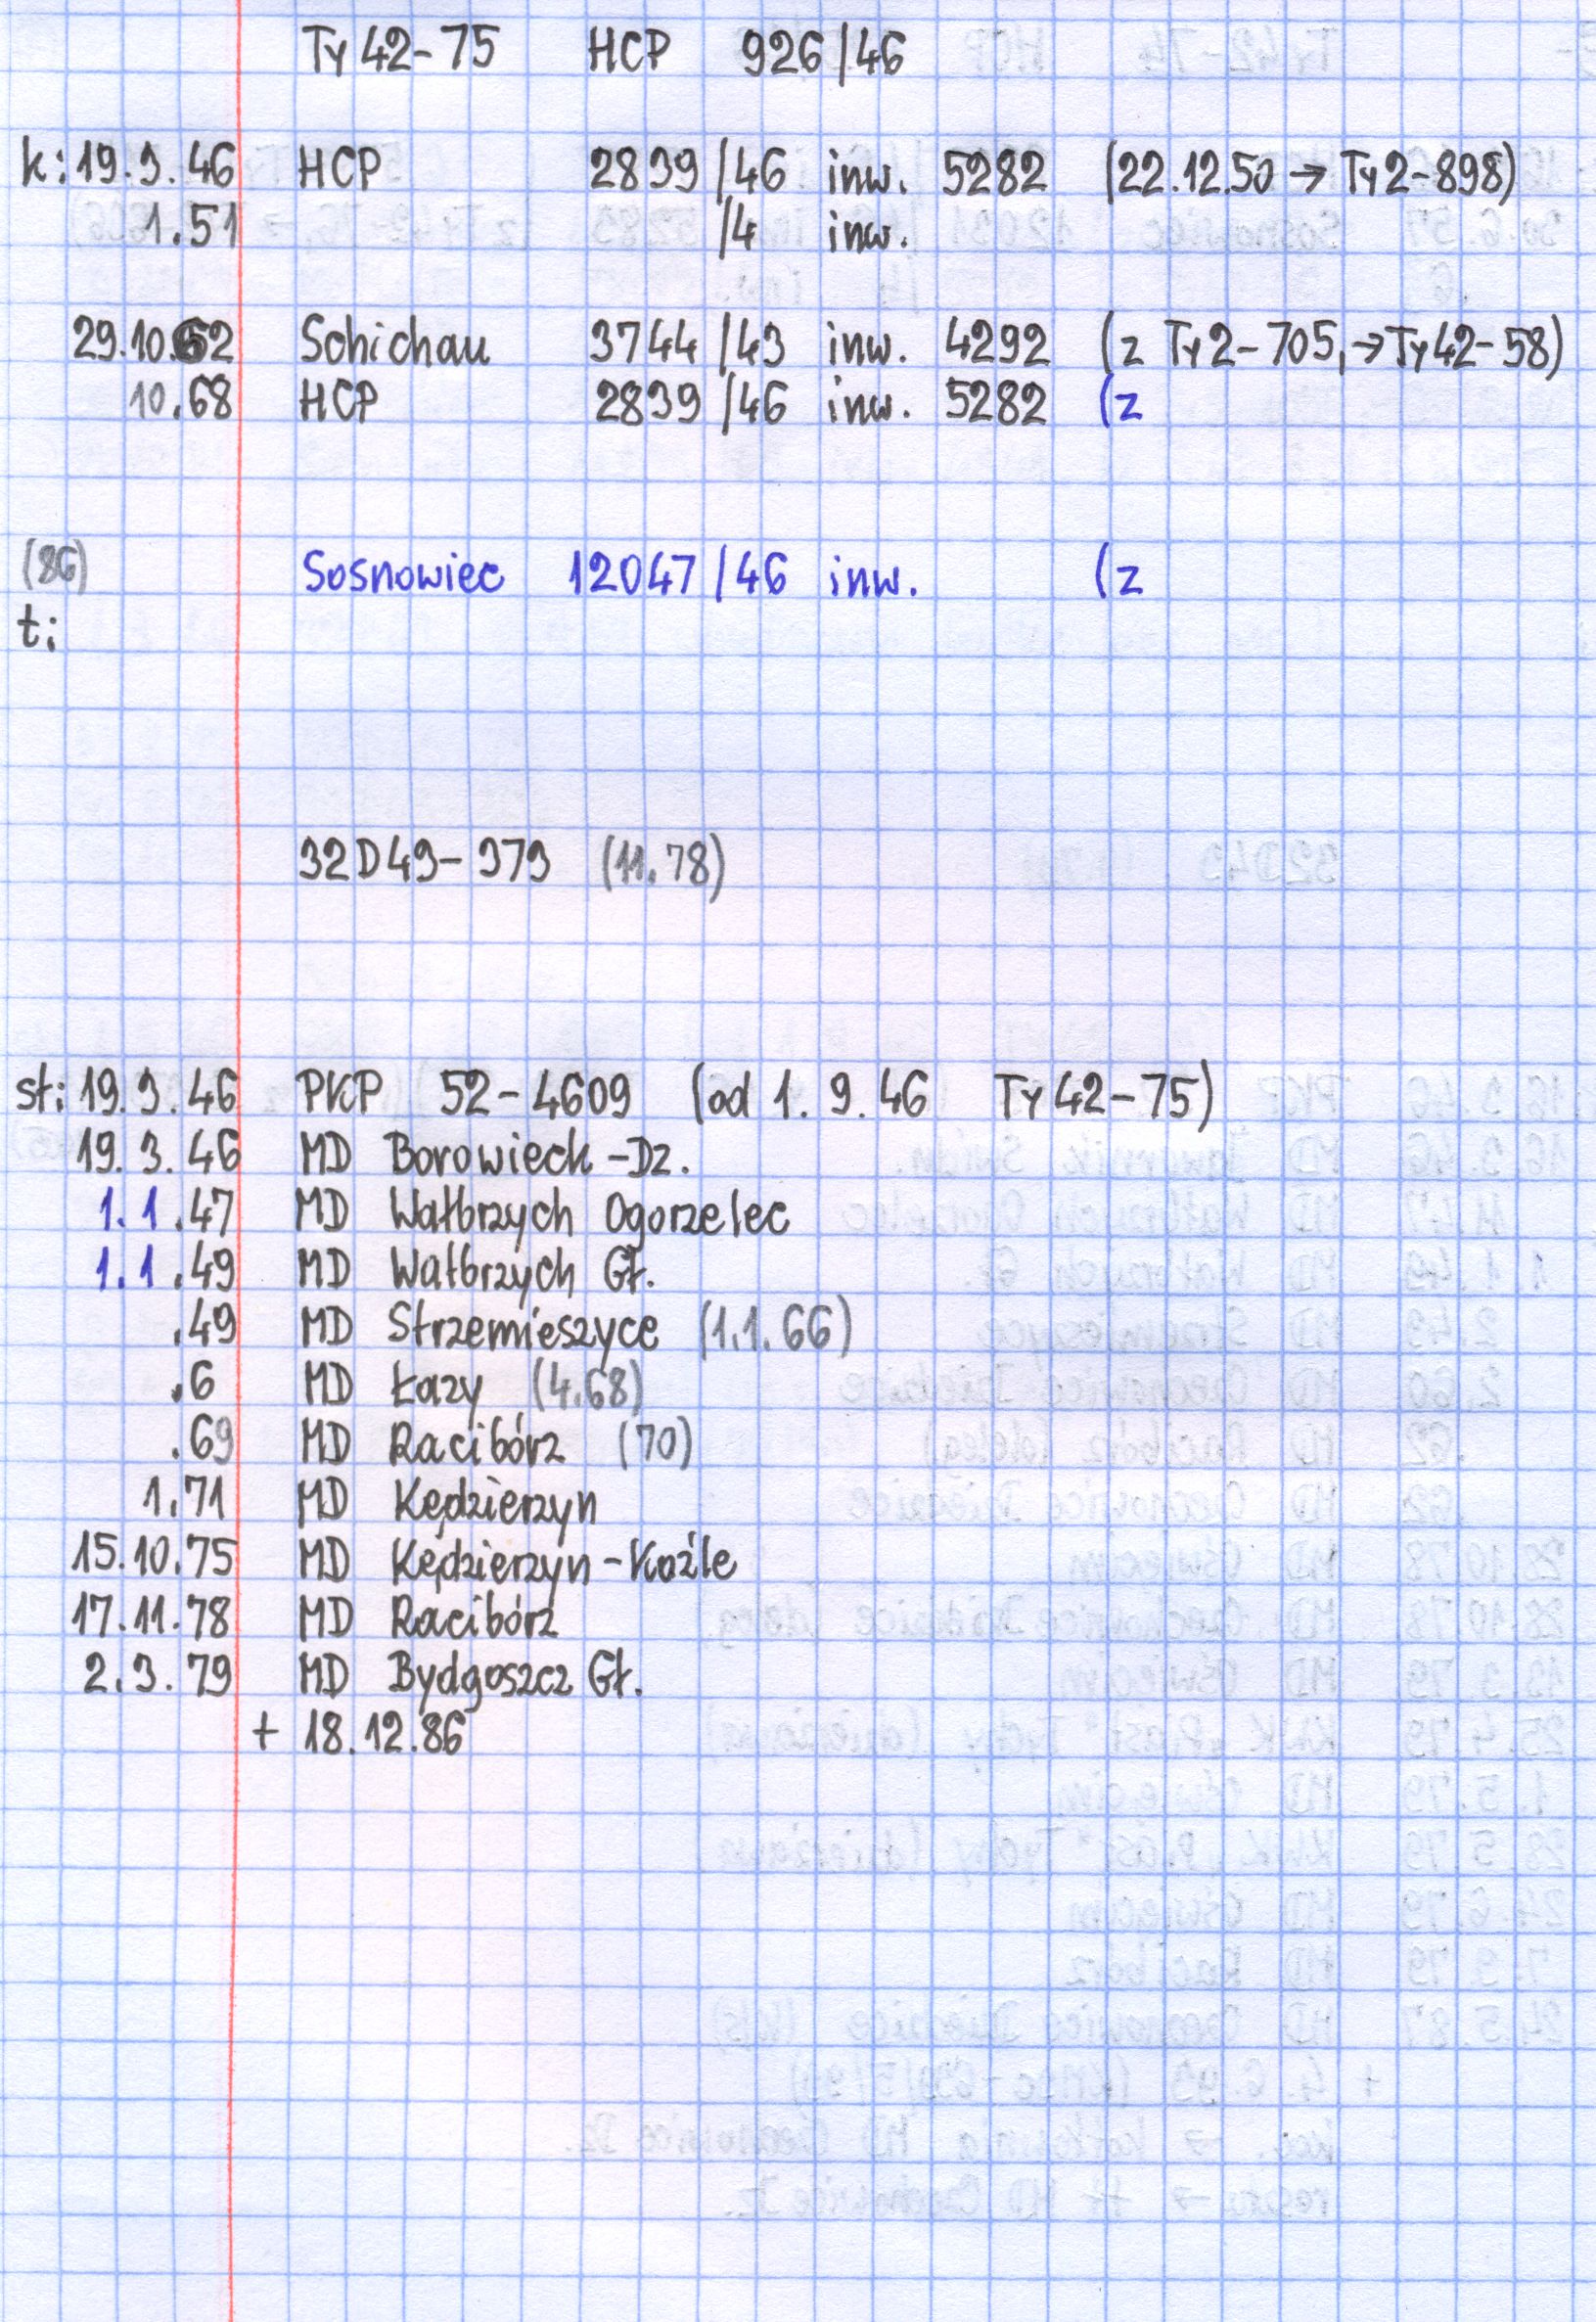 Ty42-75 HCP 926/46
k: 19.3.46 HCP 2839/46 inw. 5282 (22.12.50 → Ty2-898)
1.51 /4 inw.
29.10.62 Schichau 3744/43 inw. 4292 (z Ty2-705, → Ty42-58)
10.68 HCP 2839/46 inw. 5282 (z
(86) Sosnowiec 12047/46 inw. (z
t:
32D43-379 (11.78)
st: 19.3.46 PKP 52-4609 (od 1.9.46 Ty42-75)
19.3.46 MD Borowieck-Dz.
1.1.47 MD Wałbrzych Ogorzelec
1.1.49 MD Wałbrzych Gł.
.49 MD Strzemieszyce (1.1.66)
.6 MD Łazy (4.68)
.69 MD Racibórz (70)
1.71 MD Kędzierzyn
15.10.75 MD Kędzierzyn-Koźle
17.11.78 MD Racibórz
2.3.79 MD Bydgoszcz Gł.
+ 18.12.86